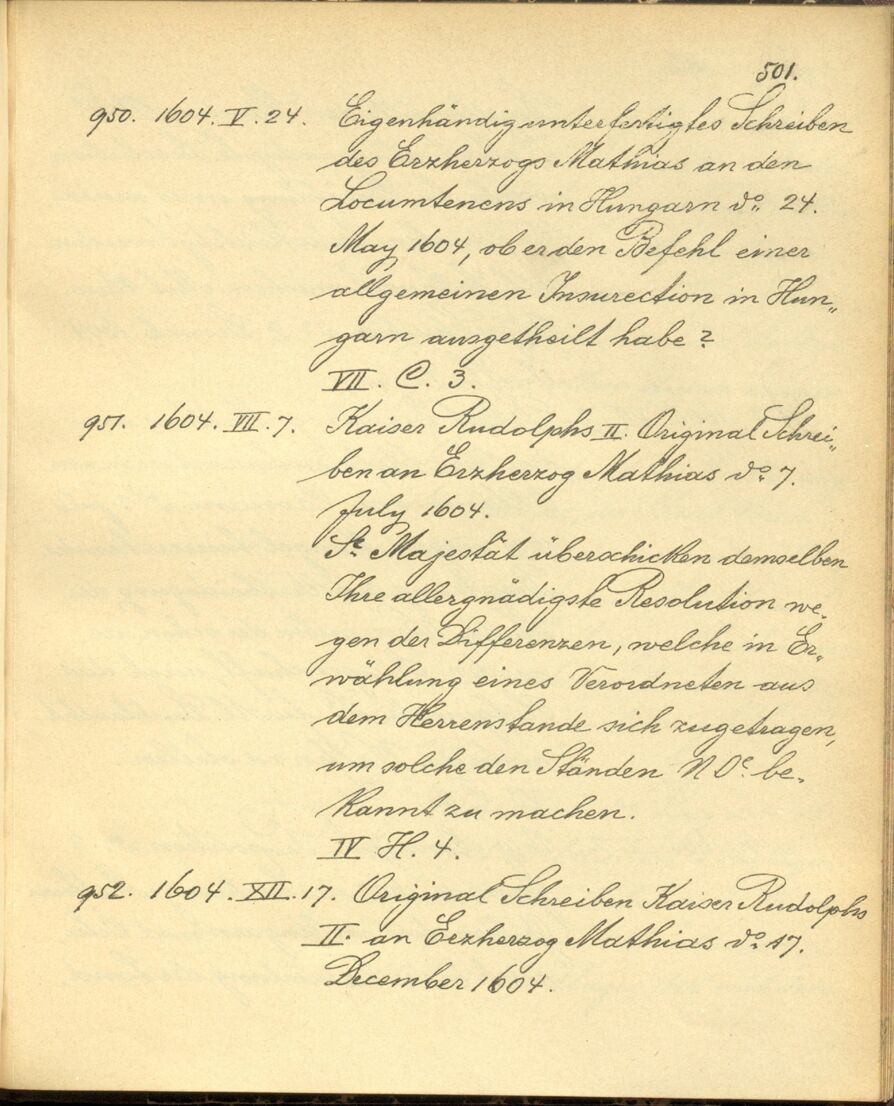 501.
950. 1604. V. 24. Eigenhändig unterfertigtes Schreiben
des Erzherzogs Mathias an den
Locumtenens in Hungarn do. 24.
May 1604, ob er den Befehl einer
allgemeinen Insurection in Hun„
garn ausgetheilt habe?
VII. C. 3.
951. 1604. VII. 7. Kaiser Rudolphs II. Original Schrei„
ben an Erzherzog Mathias do. 7.
July 1604.
Se. Majestät überschicken demselben
Ihre allergnädigste Resolution we„
gen der Differenzen, welche in Er„
wählung eines Verordneten aus
dem Herrenstande sich zugetragen,
um solche den Ständen N Oe. be„
kannt zu machen.
IV H. 4.
952. 1604. XII. 17. Original Schreiben Kaiser Rudolphs
II. an Erzherzog Mathias do. 17.
December 1604.